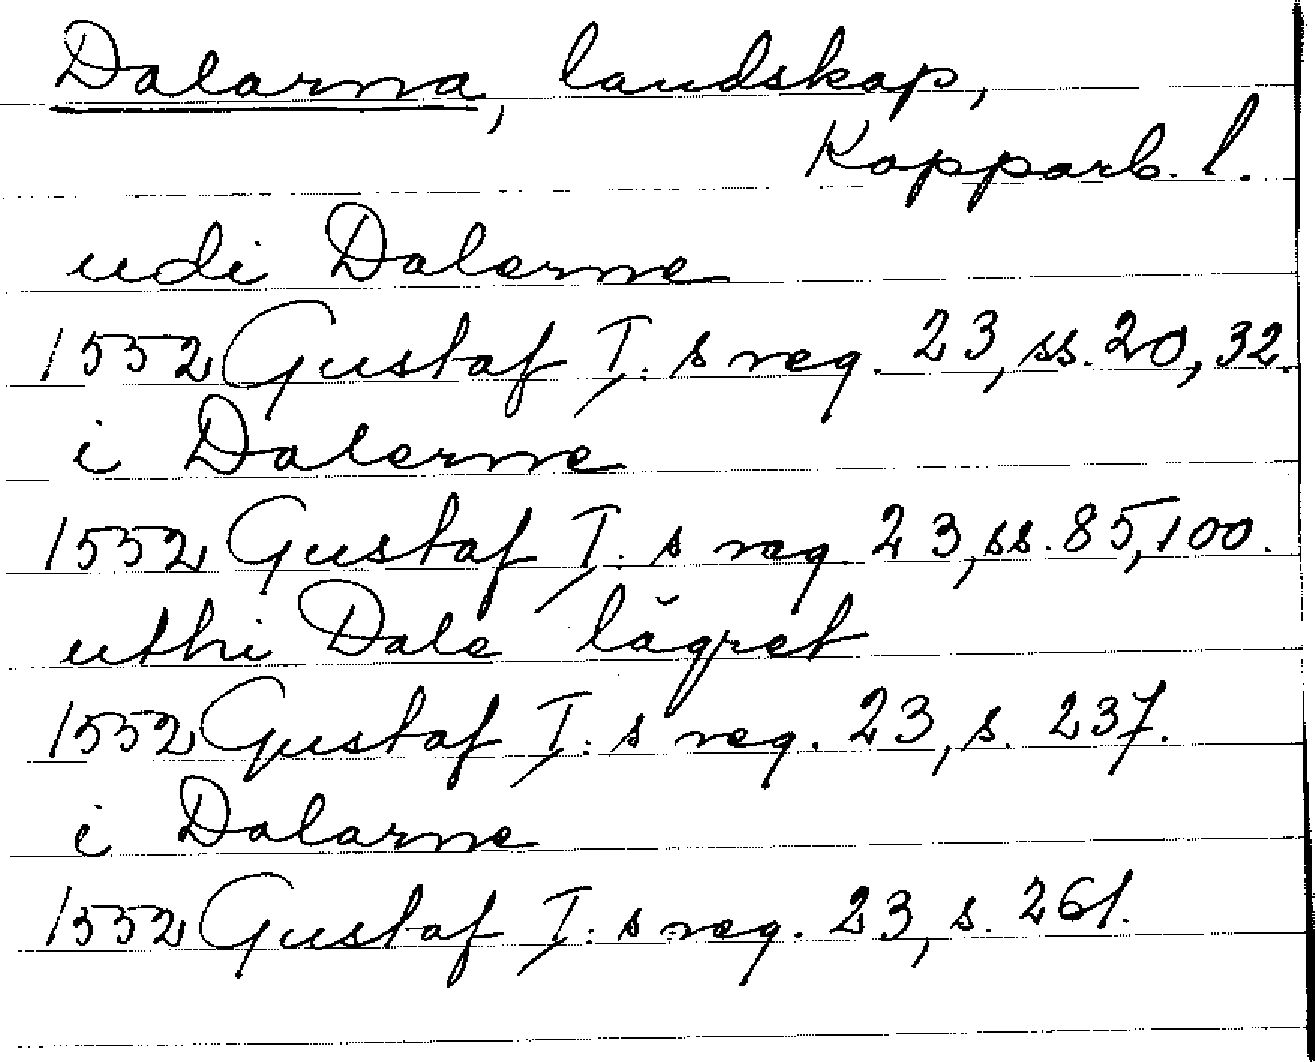 Dalarna, landskap,
Kopparb. l.
udi Dalerne
1552 Gustaf I:s reg. 23, ss. 20, 32.
i Dalerne
1552 Gustaf I:s reg 23, ss. 85, 100.
uthi Dale lägret
1552 Gustaf I:s reg. 23, s. 237.
i Dalarne
1552 Gustaf I:s reg. 23, s. 261.